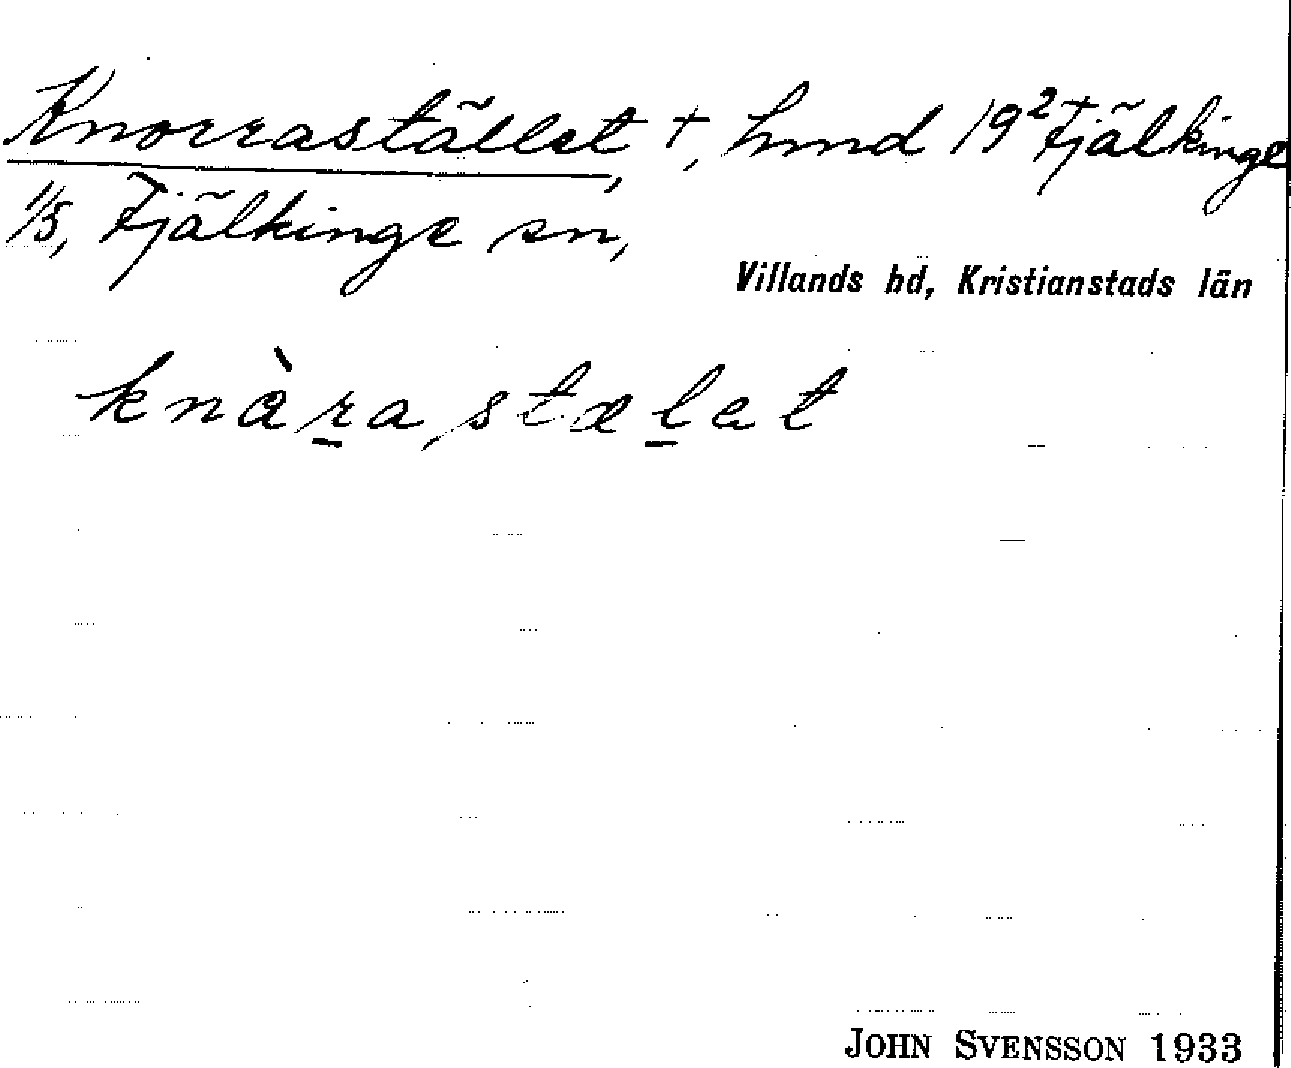 Knorrastället, †, hmd 19² Fjälkinge
1/5, Fjälkinge sn,
Villands hd, Kristianstads län
knàra,stælet
JOHN SVENSSON 1933